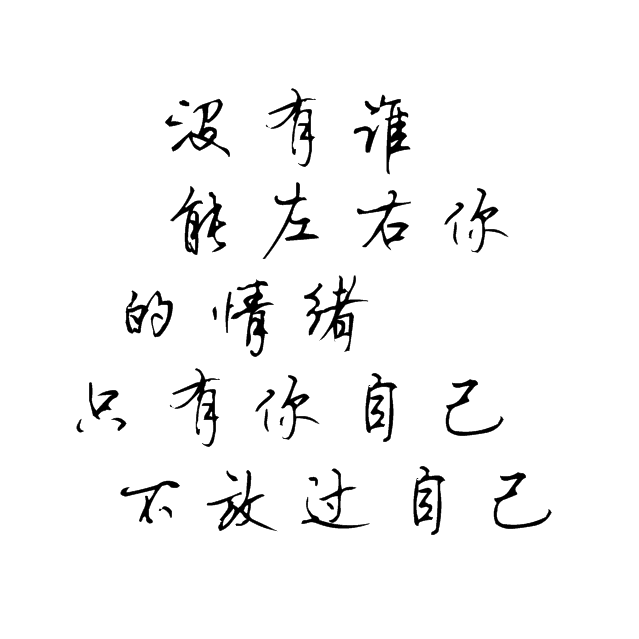 没有谁
能左右你
的情绪
只有你自己
不放过自己